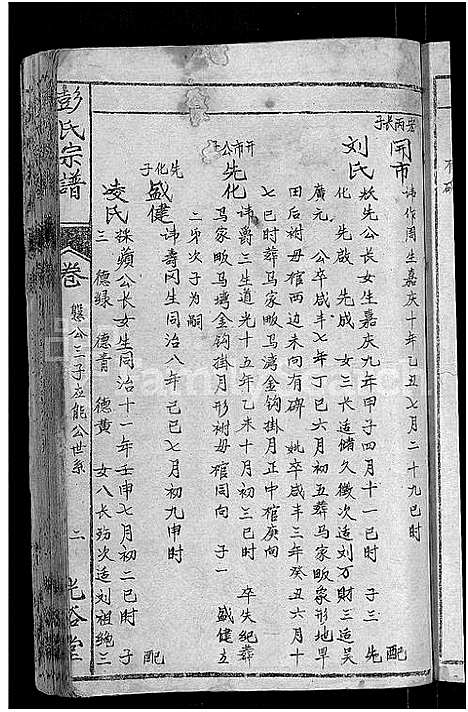 宏丙長子
開市 諱作周生嘉庆十年乙丑七月二十九巳时 配
刘氏 先公長女生嘉庆九年甲子四月十一巳时 子三 先
化 先啟 先成 女三長造储久徵次造刘万财三造吴
廣元 公卒咸丰七年丁巳六月初五葬马家畈象形地旱
田后祔母棺两边未向有碑 妣卒咸丰三年癸丑六月十
七巳时葬马家畈马漓金钩掛月正中棺庚向
開市公子
先化 諱爵三生道光十五年乙未十月初三巳时 卒失纪葬
马家畈马漓金钩掛月形祔母棺同向 子一 盛健立
二弟次子为嗣
先化子
盛健 諱壽冈生同治八年己巳七月初九申时 配
凌氏 祩蘋公長女生同治十一年壬申七月初二巳时 子
三 德緑 德青 德黄 女八長殇次适刘祖绝三
彭氏宗譜
卷
盤公三子应能公世系
二
光裕堂